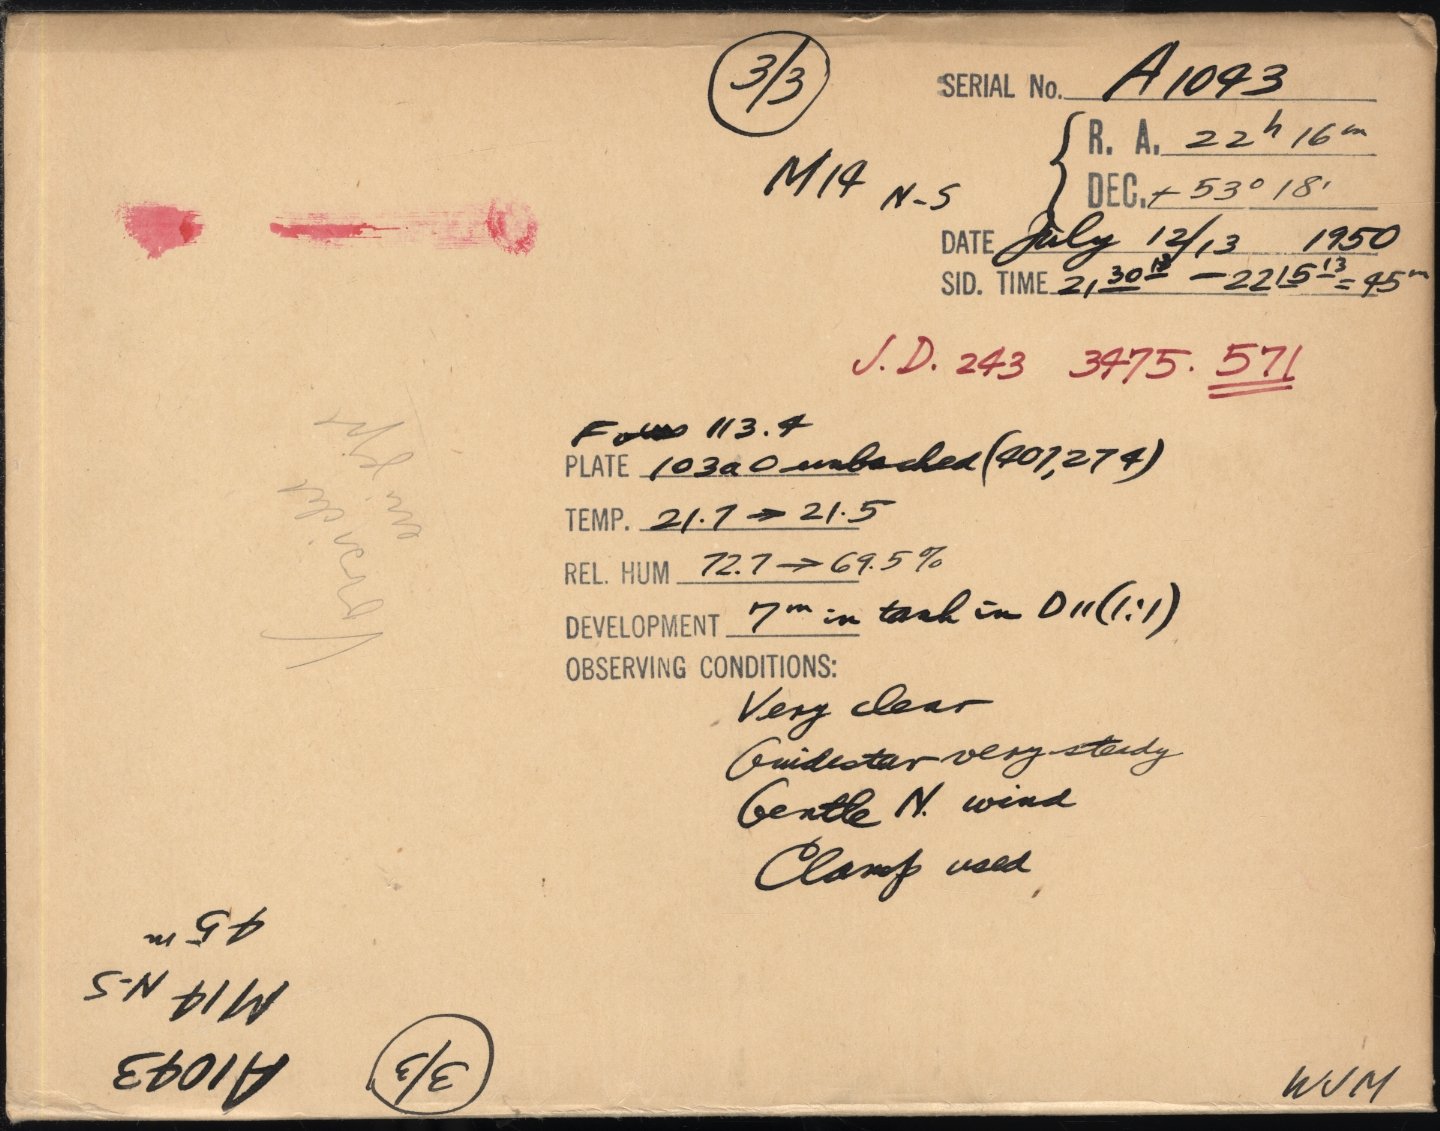 3/3
SERIAL No. A1043
R. A. 22h 16m
M14 N-S
DEC. + 53° 18'
DATE July 12/13 1950
SID. TIME 21 30 13 - 22 15 13 = 45m
J.D. 243 3475. 571
Focus 113.4
PLATE 103aO unbacked (407,274)
TEMP. 21.7 → 21.5
REL. HUM 72.7 → 69.5%
DEVELOPMENT 7m in tank in D11 (1:1)
OBSERVING CONDITIONS:
Very clear
Guidestar very steady
Gentle N. wind
Clamp used
45m
M14 N-S
A1043
3/3
WJM